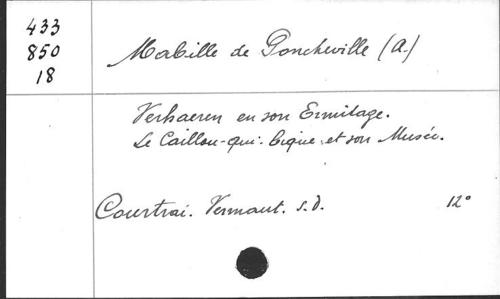 433
850
18
Mabille de Poncheville (A.)
Verhaeren en son Ermitage.
Le Caillou-qui-bique, et son Musée.
Courtrai. Vermaut. s.d. 12°